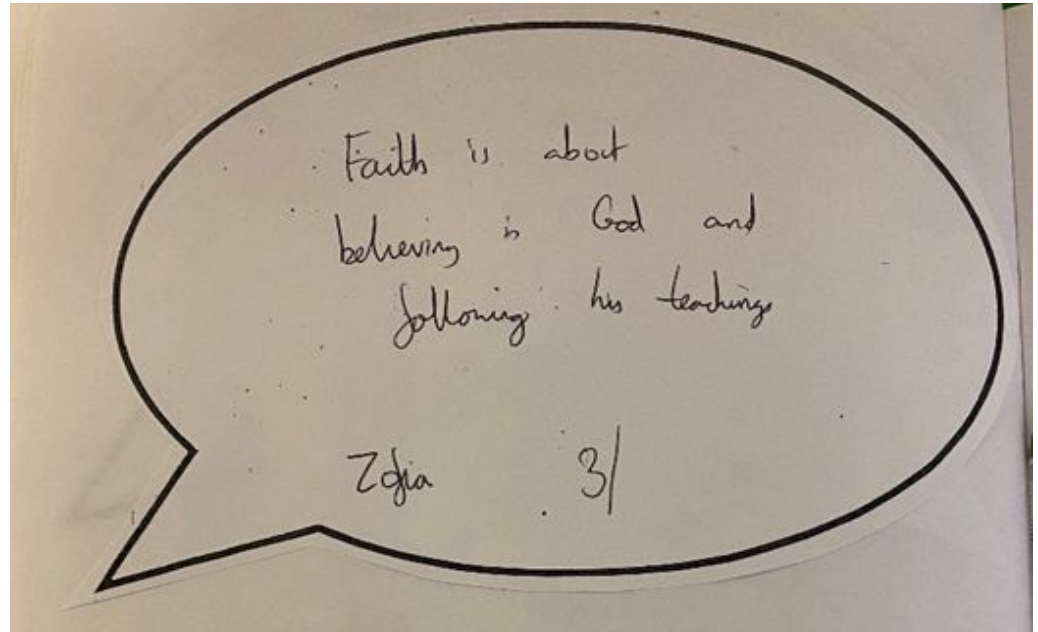 Faith is about
believing in God and
following his teachings
Zofia 3/